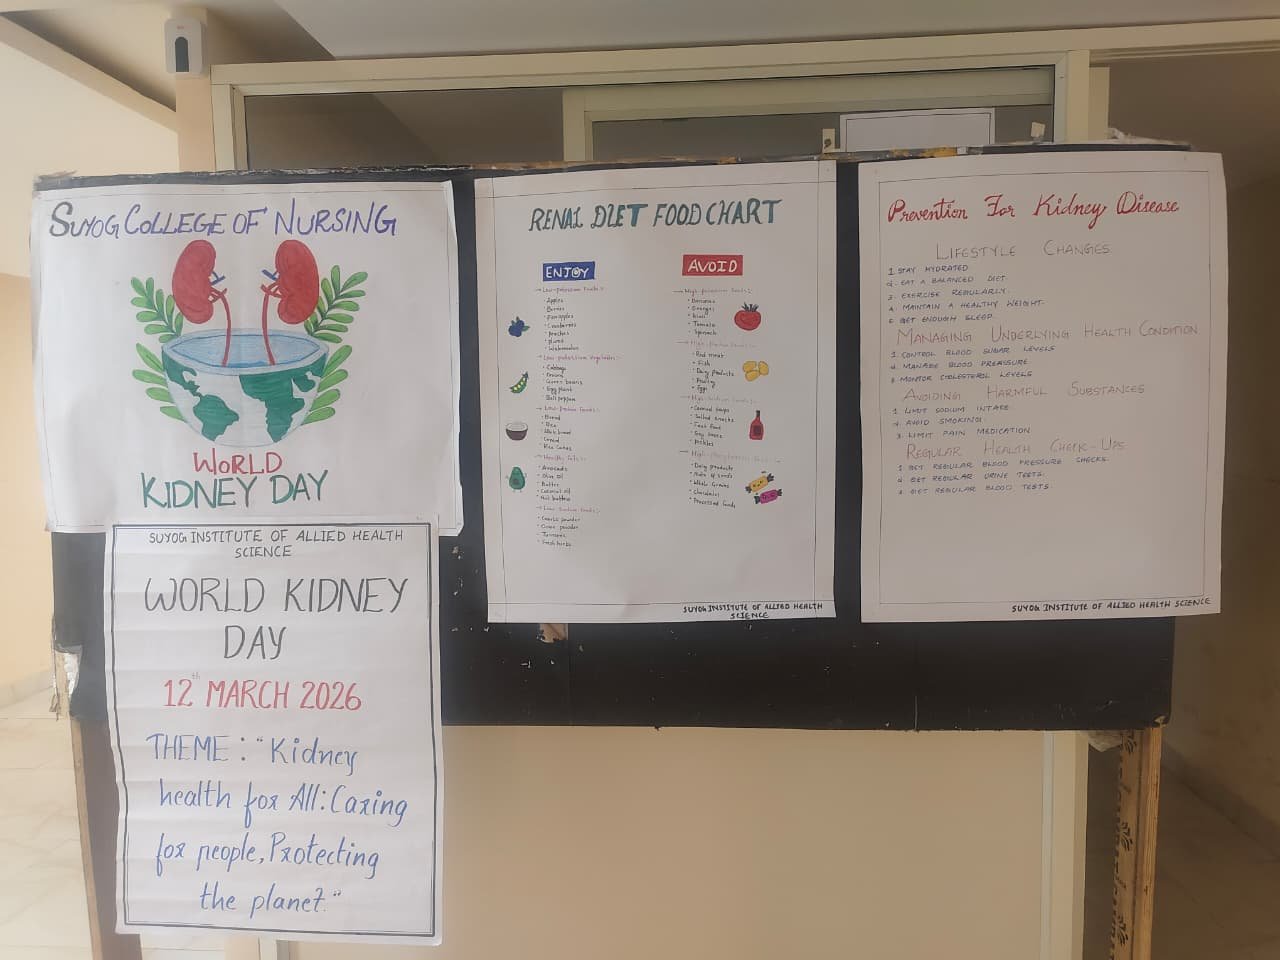 SUYOG COLLEGE OF NURSING
WORLD
KIDNEY DAY
SUYOG INSTITUTE OF ALLIED HEALTH
SCIENCE
WORLD KIDNEY
DAY
12th MARCH 2026
THEME : "Kidney
health for All: Caring
for people, Protecting
the planet."
RENAL DIET FOOD CHART
ENJOY
→ Low-potassium fruits:-
• Apples
• Berries
• Pineapples
• Cranberries
• peaches
• plums
• Watermelon
→ Low-potassium Vegetables:-
• Cabbage
• Green beans
• Egg plant
• Bell peppers
→ Low-protein foods:-
• Bread
• Rice
• Cereal
• Rice Cakes
→ Healthy fats:-
• Avocado
• Olive oil
• Butter
• Coconut oil
• Nut butters
→ Low-Sodium foods:-
• Garlic powder
• Onion powder
• Turmeric
• Fresh herbs
AVOID
→ High-potassium foods:-
• Bananas
• Oranges
• Kiwi
• Tomato
• Spinach
→ High-protein foods:-
• Red meat
• Fish
• Dairy Products
• Poultry
• Eggs
→ High-Sodium foods:-
• Canned soups
• Salted snacks
• Fast food
• Soy sauce
• pickles
→ High-phosphorus foods:-
• Dairy products
• Nuts & seeds
• Whole Grains
• Chocolates
• Processed foods
SUYOG INSTITUTE OF ALLIED HEALTH
SCIENCE
Prevention For Kidney Disease
LIFESTYLE CHANGES
1. STAY HYDRATED
2. EAT A BALANCED DIET
3. EXERCISE REGULARLY.
4. MAINTAIN A HEALTHY WEIGHT.
5. GET ENOUGH SLEEP.
MANAGING UNDERLYING HEALTH CONDITION
1. CONTROL BLOOD SUGAR LEVELS
2. MANAGE BLOOD PRESSURE
3. MONITOR CHOLESTEROL LEVELS
AVOIDING HARMFUL SUBSTANCES
1. LIMIT SODIUM INTAKE
2. AVOID SMOKING
3. LIMIT PAIN MEDICATION
REGULAR HEALTH CHECK-UPS
1. GET REGULAR BLOOD PRESSURE CHECKS.
2. GET REGULAR URINE TESTS.
3. GET REGULAR BLOOD TESTS.
SUYOG INSTITUTE OF ALLIED HEALTH SCIENCE